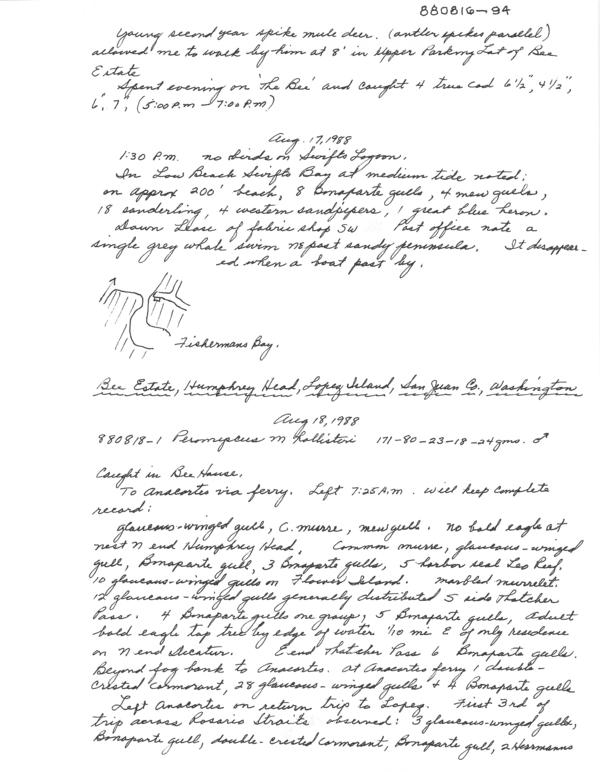 880816-94
Young second year spike mule deer. (antler spikes parallel)
allowed me to walk by him at 8' in Upper Parking Lot of Bee
Estate
Spent evening on 'The Bee' and caught 4 true cod 6½", 4½",
6", 7", (5:00 P.m - 7:00 P.m)
Aug. 17, 1988
1:30 P.M. no birds on Swifts Lagoon.
In Low Beach Swifts Bay at medium tide noted:
on approx 200' beach, 8 Bonaparte gulls, 4 mew gulls,
18 sanderling, 4 western sandpipers, 1 great blue heron.
Dawn Lease of fabric shop SW Post office note a
single grey whale swim NE past sandy peninsula. It disappear-
ed when a boat past by.
Fishermans Bay.
Bee Estate, Humphrey Head, Lopez Island, San Juan Co., Washington
Aug 18, 1988
880818-1 Peromyscus m hollisteri 171-80-23-18-24gms. ♂
Caught in Bee House.
To Anacortes via ferry. Left 7:25 A.m. will keep complete
record:
glaucous-winged gull, C. murre, mew gull. no bald eagle at
nest N end Humphrey Head, Common murre, glaucous-winged
gull, Bonaparte gull, 3 Bonaparte gulls, 5 harbor seal Leo Reef,
10 glaucous-winged gulls on Flower Island. marbled murrelet.
12 glaucous-winged gulls generally distributed S side Thatcher
Pass. 4 Bonaparte gulls one group, 5 Bonaparte gulls, Adult
bald eagle top tree by edge of water 1/10 mi E of only residence
on N end Decatur. E end Thatcher Pass 6 Bonaparte gulls.
Beyond fog bank to Anacortes. At Anacortes ferry 1 double-
crested Cormorant, 28 glaucous-winged gulls + 4 Bonaparte gulls
Left Anacortes on return trip to Lopez. First 3rd of
trip across Rosario Straits observed: 3 glaucous-winged gulls,
Bonaparte gull, double-crested Cormorant, Bonaparte gull, 2 Heermanns